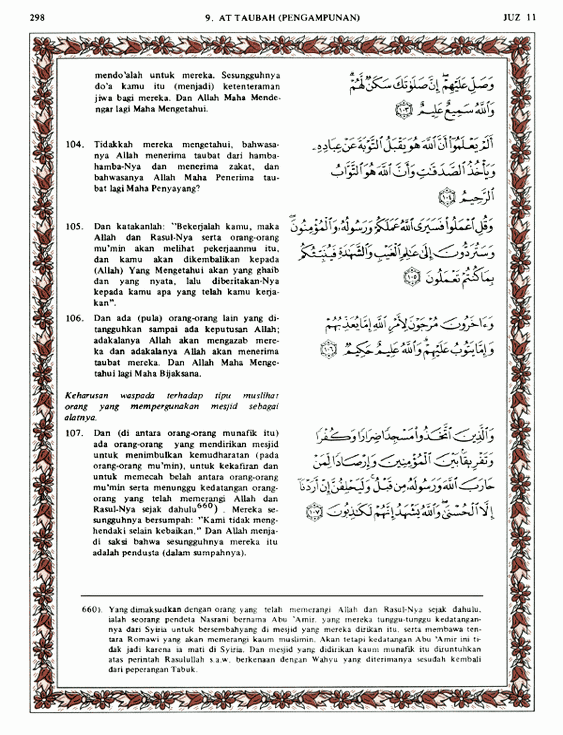 298
9. AT TAUBAH (PENGAMPUNAN)
JUZ 11
mendo'alah untuk mereka. Sesungguhnya
do'a kamu itu (menjadi) ketenteraman
jiwa bagi mereka. Dan Allah Maha Mende-
ngar lagi Maha Mengetahui.
وَصَلِّ عَلَيْهِمْ إِنَّ صَلَوٰتَكَ سَكَنٌ لَّهُمْ
وَٱللَّهُ سَمِيعٌ عَلِيمٌ ﴿١٠٣﴾
104. Tidakkah mereka mengetahui, bahwasa-
nya Allah menerima taubat dari hamba-
hamba-Nya dan menerima zakat, dan
bahwasanya Allah Maha Penerima tau-
bat lagi Maha Penyayang?
أَلَمْ يَعْلَمُوٓا۟ أَنَّ ٱللَّهَ هُوَ يَقْبَلُ ٱلتَّوْبَةَ عَنْ عِبَادِهِۦ
وَيَأْخُذُ ٱلصَّدَقَٰتِ وَأَنَّ ٱللَّهَ هُوَ ٱلتَّوَّابُ
ٱلرَّحِيمُ ﴿١٠٤﴾
105. Dan katakanlah: "Bekerjalah kamu, maka
Allah dan Rasul-Nya serta orang-orang
mu'min akan melihat pekerjaanmu itu,
dan kamu akan dikembalikan kepada
(Allah) Yang Mengetahui akan yang ghaib
dan yang nyata, lalu diberitakan-Nya
kepada kamu apa yang telah kamu kerja-
kan".
وَقُلِ ٱعْمَلُوا۟ فَسَيَرَى ٱللَّهُ عَمَلَكُمْ وَرَسُولُهُۥ وَٱلْمُؤْمِنُونَ
وَسَتُرَدُّونَ إِلَىٰ عَٰلِمِ ٱلْغَيْبِ وَٱلشَّهَٰدَةِ فَيُنَبِّئُكُم
بِمَا كُنتُمْ تَعْمَلُونَ ﴿١٠٥﴾
106. Dan ada (pula) orang-orang lain yang di-
tangguhkan sampai ada keputusan Allah;
adakalanya Allah akan mengazab mere-
ka dan adakalanya Allah akan menerima
taubat mereka. Dan Allah Maha Menge-
tahui lagi Maha Bijaksana.
وَءَاخَرُونَ مُرْجَوْنَ لِأَمْرِ ٱللَّهِ إِمَّا يُعَذِّبُهُمْ
وَإِمَّا يَتُوبُ عَلَيْهِمْ وَٱللَّهُ عَلِيمٌ حَكِيمٌ ﴿١٠٦﴾
Keharusan waspada terhadap tipu muslihat
orang yang mempergunakan mesjid sebagai
alatnya.
107. Dan (di antara orang-orang munafik itu)
ada orang-orang yang mendirikan mesjid
untuk menimbulkan kemudharatan (pada
orang-orang mu'min), untuk kekafiran dan
untuk memecah belah antara orang-orang
mu'min serta menunggu kedatangan orang-
orang yang telah memerangi Allah dan
Rasul-Nya sejak dahulu660) . Mereka se-
sungguhnya bersumpah: "Kami tidak meng-
hendaki selain kebaikan." Dan Allah menja-
di saksi bahwa sesungguhnya mereka itu
adalah pendusta (dalam sumpahnya).
وَٱلَّذِينَ ٱتَّخَذُوا۟ مَسْجِدًا ضِرَارًا وَكُفْرًا
وَتَفْرِيقًۢا بَيْنَ ٱلْمُؤْمِنِينَ وَإِرْصَادًا لِّمَنْ
حَارَبَ ٱللَّهَ وَرَسُولَهُۥ مِن قَبْلُ وَلَيَحْلِفُنَّ إِنْ أَرَدْنَآ
إِلَّا ٱلْحُسْنَىٰ وَٱللَّهُ يَشْهَدُ إِنَّهُمْ لَكَٰذِبُونَ ﴿١٠٧﴾
660). Yang dimaksudkan dengan orang yang telah memerangi Allah dan Rasul-Nya sejak dahulu,
ialah seorang pendeta Nasrani bernama Abu 'Amir, yang mereka tunggu-tunggu kedatangan-
nya dari Syiria untuk bersembahyang di mesjid yang mereka dirikan itu, serta membawa ten-
tara Romawi yang akan memerangi kaum muslimin. Akan tetapi kedatangan Abu 'Amir ini ti-
dak jadi karena ia mati di Syiria. Dan mesjid yang didirikan kaum munafik itu diruntuhkan
atas perintah Rasulullah s.a.w. berkenaan dengan Wahyu yang diterimanya sesudah kembali
dari peperangan Tabuk.